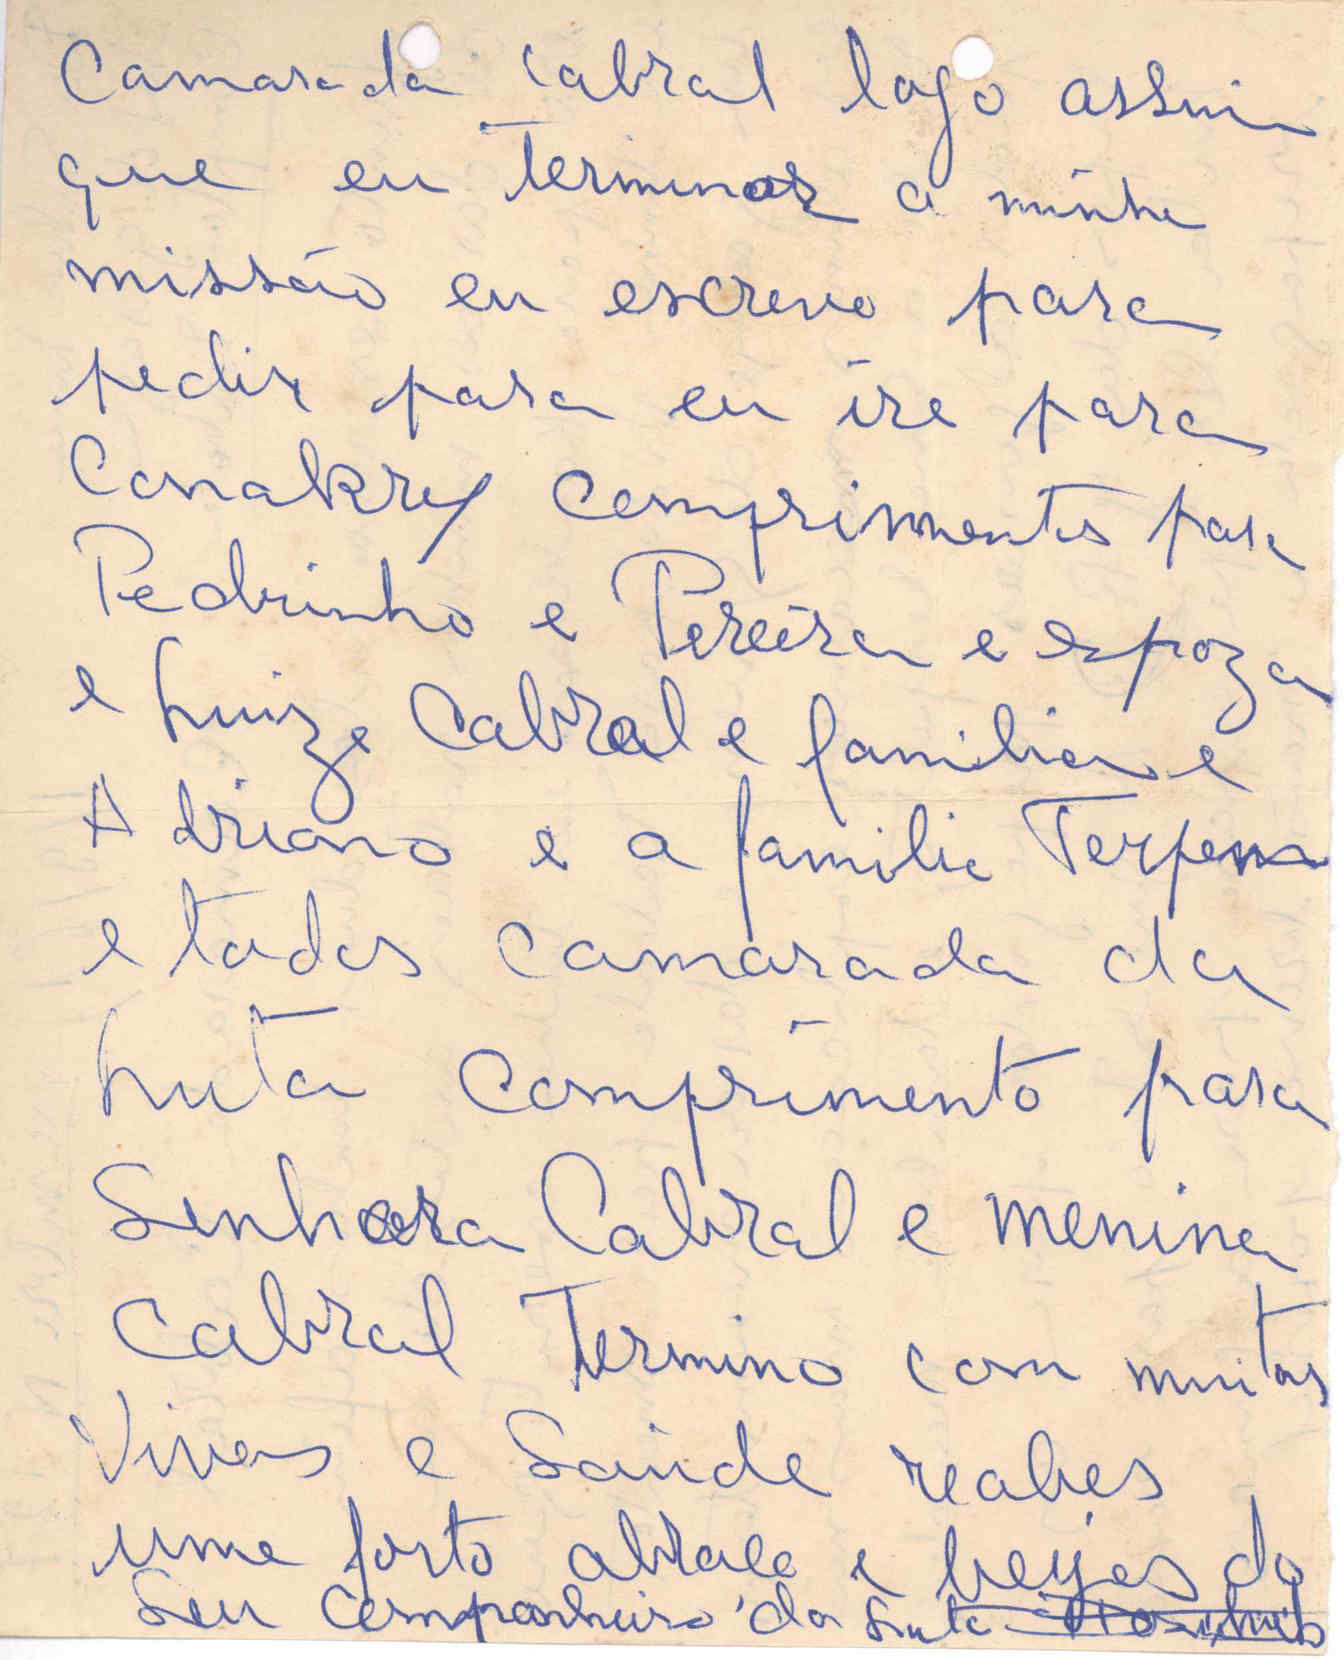 Camarada Cabral logo assim
que eu terminar a minha
missão eu escrevo para
pedir para eu ire para
Conakry comprimentos para
Pedrinho e Pereira e espoza
e Luize Cabral e familia e
Adriano e a familia
e todos camarada da
Luta comprimento para
Senhora Cabral e menina
Cabral Termino com muitas
Vivas e Saúde reabes
uma forto abraco e beijos do
Seu Companheiro da Luta